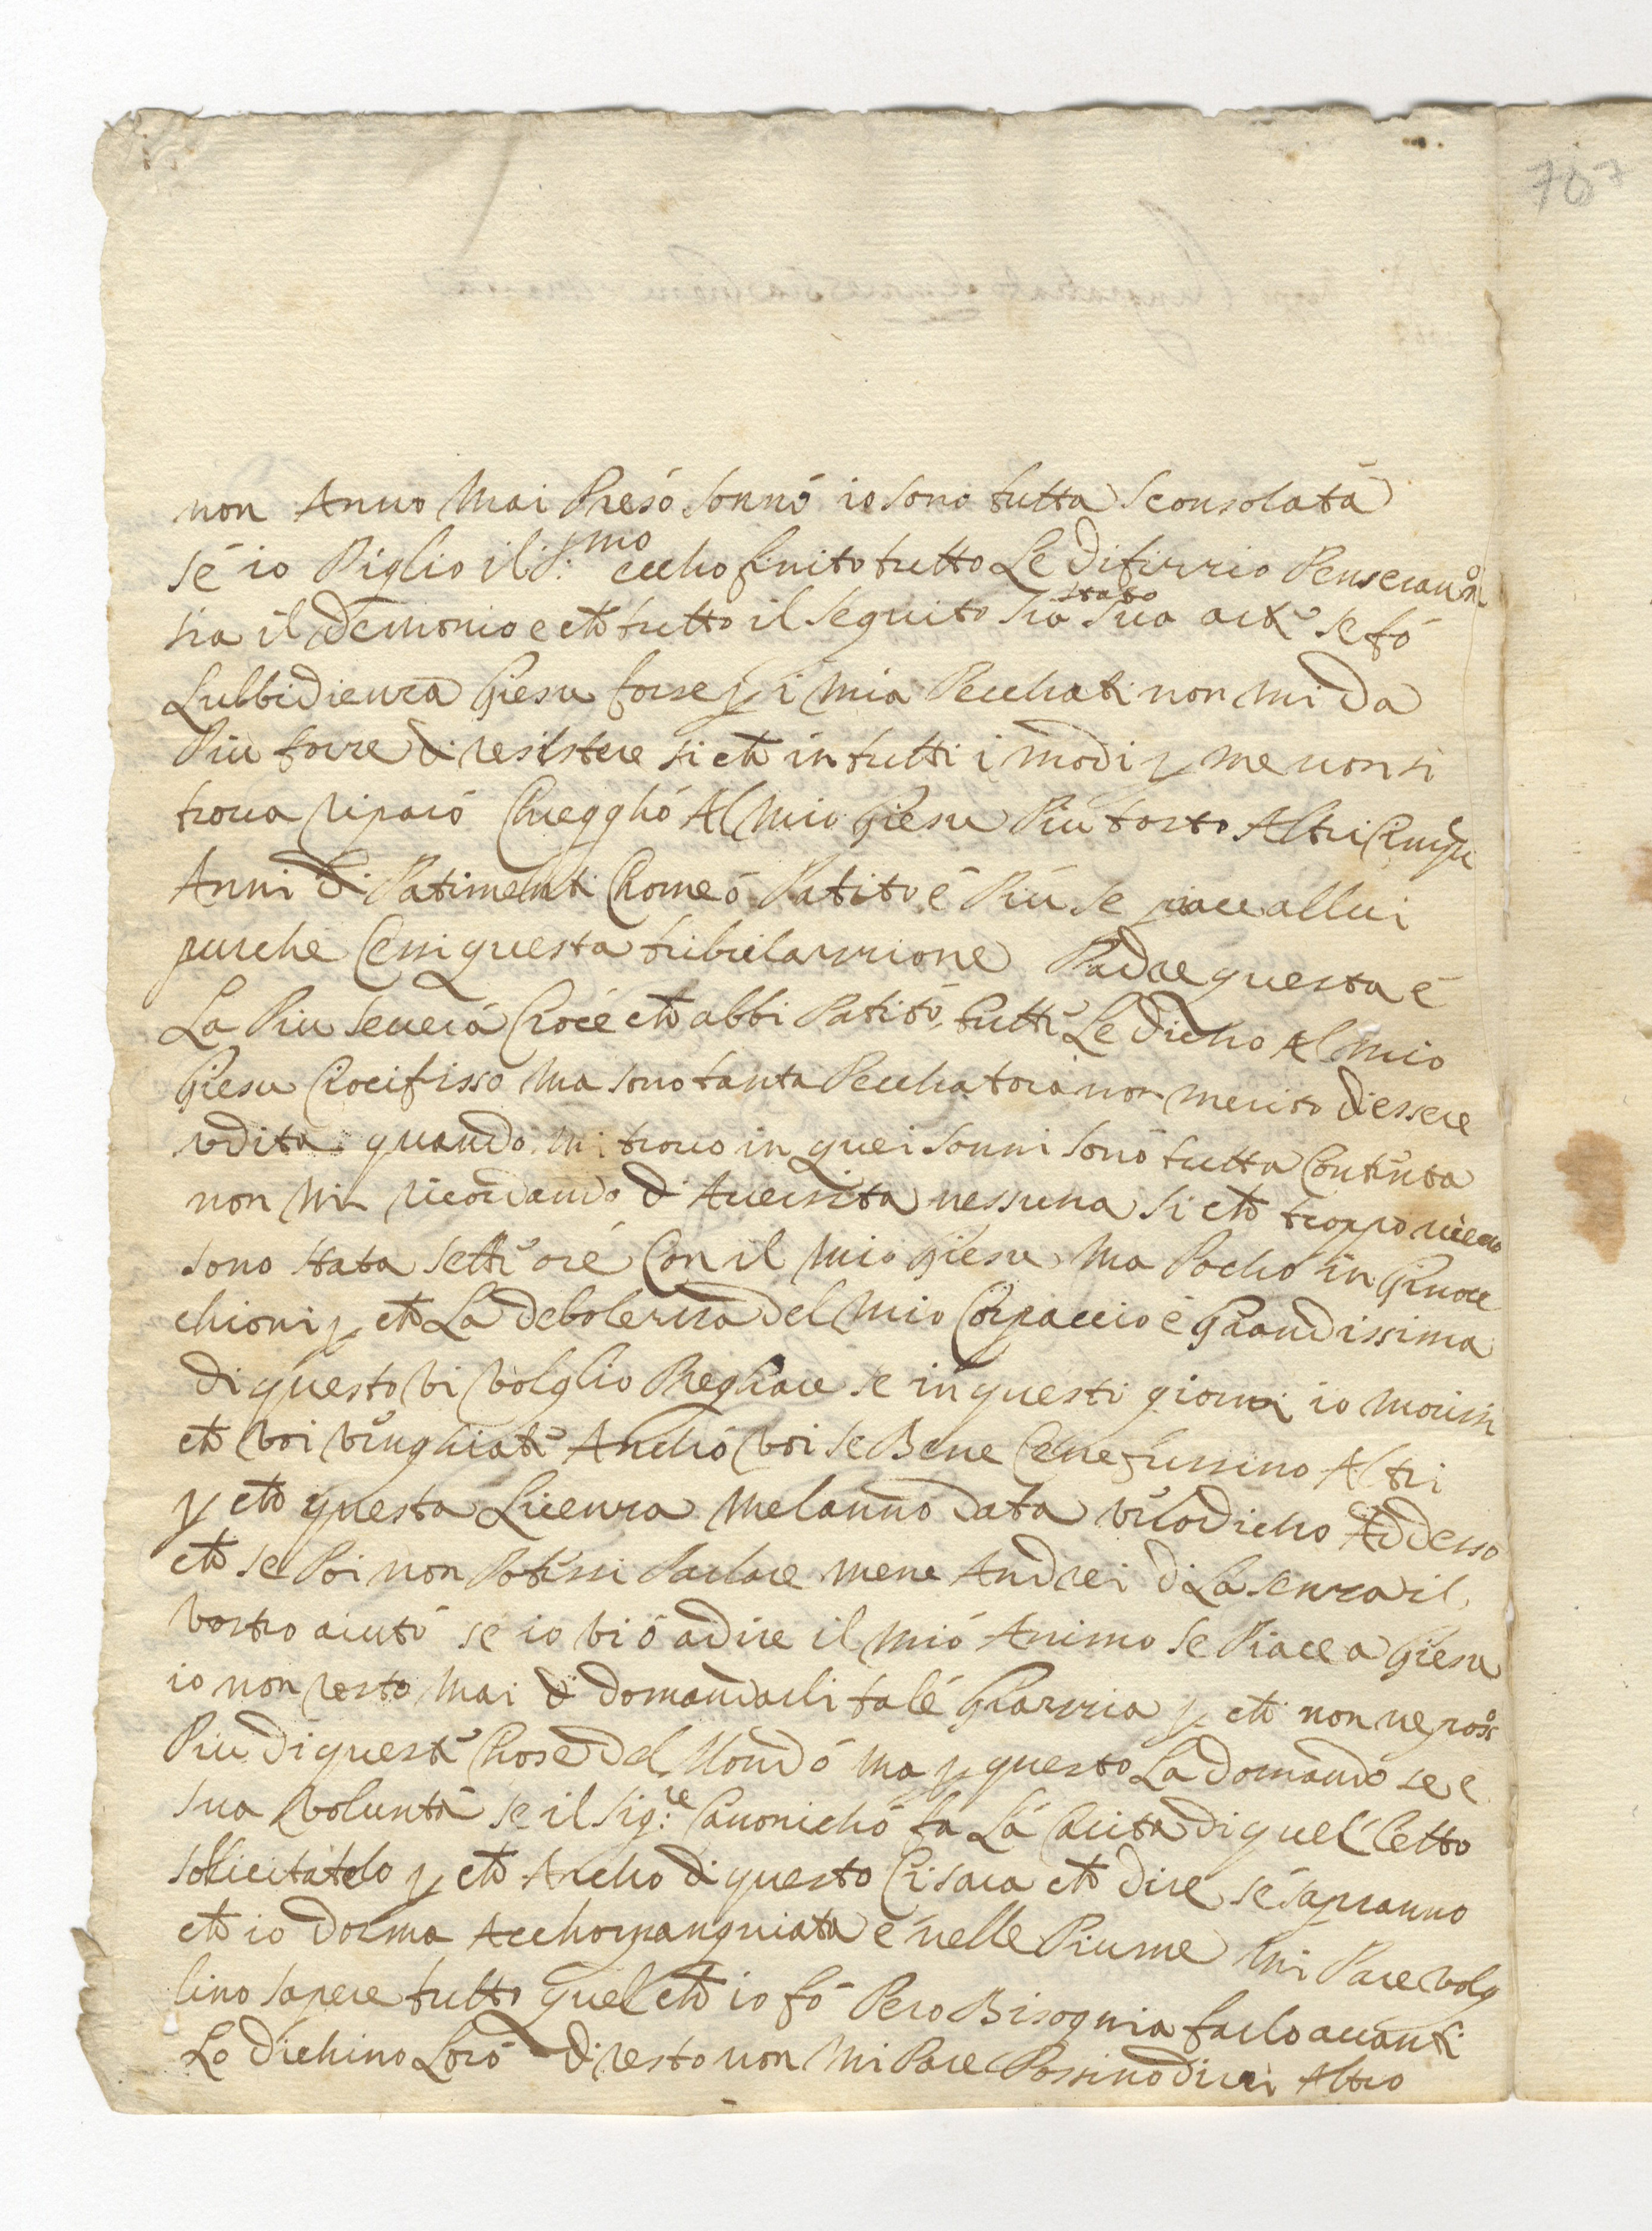 707
non Anno Mai Preso sonno io sono tutta sconsolata
se io Piglio il S:mo eccho finito tutto Le difirrio Penserann
sia il demonio e che tutto il seguito sia stato sua se fo
Lubbidienza Giesu forse p i mia Pecchati non mi da
Piu forze di resistere si che in tutti i modi p me non si
troua riparo Chiegghо Al Mio Giesu Piu tosto Altri
Anni di Patimenti Chome o Patito e Piu se piace allui
purche Cessi questa tribulazzione Padre questa e
La Piu seuera Croce che abbi Patito tutte Le dicho Al mio
Giesu Crocifisso Ma sono tanta Pecchatora non merito d'essere
udita quando mi trouo in quei sonni sono tutta Contenta
non Mi ricordando d Auersita nessuna si che troppo
sono stata sette ore Con il Mio Giesu Ma Pocho in Ginoc
chioni p che La debolezza del Mio Corpaccio e Grandissima
di questo vi volglio Preghare se in questi giorni io morissi
che voi venghiate Ancho voi se Bene Cene fussino Altri
p che questa Licenza Melanno data velo dicho Addesso
che se Poi non Potessi Parlare Mene Andrei di La senza il
vostro aiuto se io vi o a dire il mio Animo se Piace a Giesu
io non resto Mai di domandarli tale Grazzia p che non ne poss
Piu di queste Chose del Mondo Ma p questo La domando se e
sua volunta se il Sig:re Canonicho fa La Carita di quel Letto
sollicitatelo p che Ancho di questo Ci sara che dire se sapranno
che io dorma Acchompangniata e nelle Piume Mi Pare volg
lino sapere tutto quel che io fo Pero Bisognia farlo auanti
Lo dichino Loro di resto non Mi Pare Possino dirci Altro